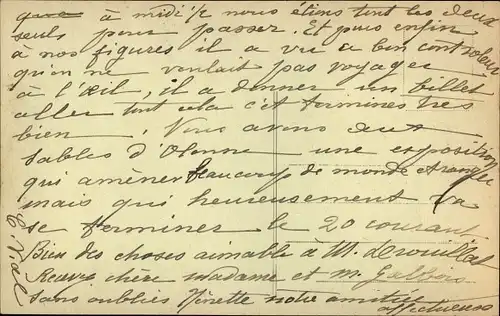 à midi ½ nous étions tout les deux
seuls pour passer. Et puis enfin
à nos figures il a vu a bon controleur
qu'on ne voulait pas voyager
à l'œil, il a donner un billet
aller tout cela c'et termines tres
bien. Nous avons aux
Sables d'Olonne une exposition
qui amèner beaucoup de monde etranger
mais qui heureusement va
se terminer le 20 courant
Bien des choses aimable à M.
Recevez chère madame et M.
sans oublies Ninette notre amitie
affectueuse
E Viel